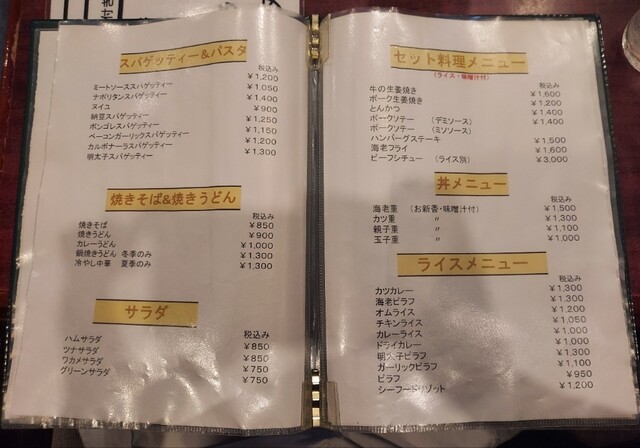 スパゲッティー&パスタ
税込み
ミートソーススパゲッティー ¥1,200
ナポリタンスパゲッティー ¥1,050
ヌイユ ¥1,400
納豆スパゲッティー ¥900
ボンゴレスパゲッティー ¥1,250
ベーコンガーリックスパゲッティー ¥1,150
カルボナーラスパゲッティー ¥1,200
明太子スパゲッティー ¥1,300
焼きそば&焼きうどん
税込み
焼きそば ¥850
焼きうどん ¥900
カレーうどん ¥1,000
鍋焼きうどん 冬季のみ ¥1,300
冷やし中華 夏季のみ ¥1,300
サラダ
税込み
ハムサラダ ¥850
ツナサラダ ¥850
ワカメサラダ ¥750
グリーンサラダ ¥750
セット料理メニュー
(ライス・味噌汁付)
税込み
牛の生姜焼き ¥1,600
ポーク生姜焼き ¥1,200
とんかつ ¥1,400
ポークソテー (デミソース) ¥1,400
ポークソテー (ミソソース)
ハンバーグステーキ ¥1,500
海老フライ ¥1,600
ビーフシチュー (ライス別) ¥3,000
丼メニュー
税込み
海老重 (お新香・味噌汁付) ¥1,500
カツ重 〃 ¥1,300
親子重 〃 ¥1,100
玉子重 〃 ¥1,000
ライスメニュー
税込み
カツカレー ¥1,300
海老ピラフ ¥1,300
オムライス ¥1,200
チキンライス ¥1,050
カレーライス ¥1,000
ドライカレー ¥1,000
明太子ピラフ ¥1,300
ガーリックピラフ ¥1,100
ピラフ ¥950
シーフードリゾット ¥1,200